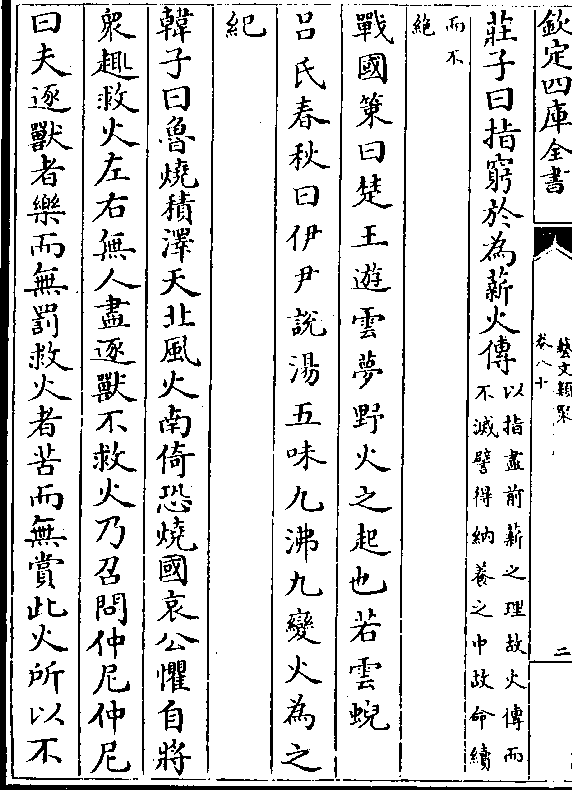 欽定四庫全書
藝文類聚
卷八十
二
莊子曰指窮於為薪火傳以指盡前薪之理故火傳而
不滅譬得納養之中故命續
而不
絶
戰國策曰楚王遊雲夢野火之起也若雲蜺
吕氏春秋曰伊尹說湯五味九沸九變火為之
紀
韓子曰魯燒積澤天北風火南倚恐燒國哀公懼自將
衆趣救火左右無人盡逐獸不救火乃召問仲尼仲尼
曰夫逐獸者樂而無罰救火者苦而無賞此火所以不